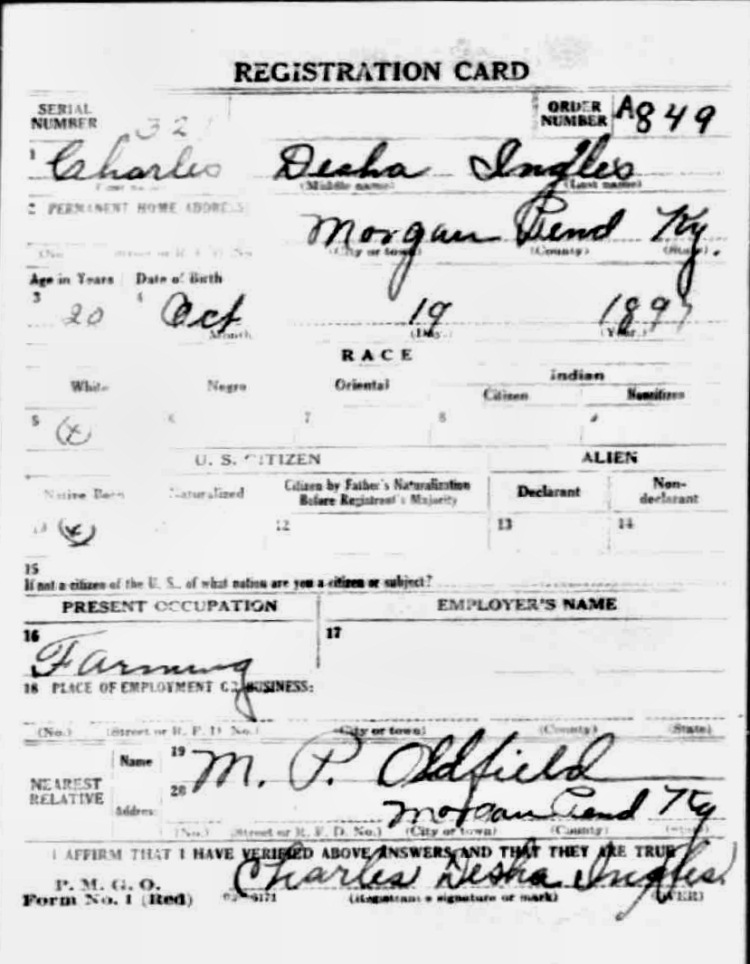 REGISTRATION CARD
SERIAL NUMBER 321 ORDER NUMBER A849
1 Charles Desha Ingles
(Middle name) (Last name)
2 PERMANENT HOME ADDRESS:
Morgan Pend Ky.
(No.) (Street or R. F. D. No.) (City or town) (County) (State)
Age in Years Date of Birth
3 20 4 Oct 19 1897
Month (Day.) (Year.)
RACE
White Negro Oriental Indian
Citizen Noncitizen
5 (x) 6 7 8
U. S. CITIZEN ALIEN
Native Born Naturalized Citizen by Father's Naturalization Before Registrant's Majority Declarant Non-declarant
10 (x) 12 13 14
15
If not a citizen of the U. S., of what nation are you a citizen or subject?
PRESENT OCCUPATION EMPLOYER'S NAME
16 Farming 17
18 PLACE OF EMPLOYMENT OR BUSINESS:
(No.) (Street or R. F. D. No.) (City or town) (County) (State)
NEAREST RELATIVE Name 19 M. P. Oldfield
Address 20 Morgan Pend Ky
(No.) (Street or R. F. D. No.) (City or town) (County) (State)
I AFFIRM THAT I HAVE VERIFIED ABOVE ANSWERS AND THAT THEY ARE TRUE
P. M. G. O. Charles Desha Ingles.
Form No. 1 (Red) 03—6171 (Registrant's signature or mark) (OVER)